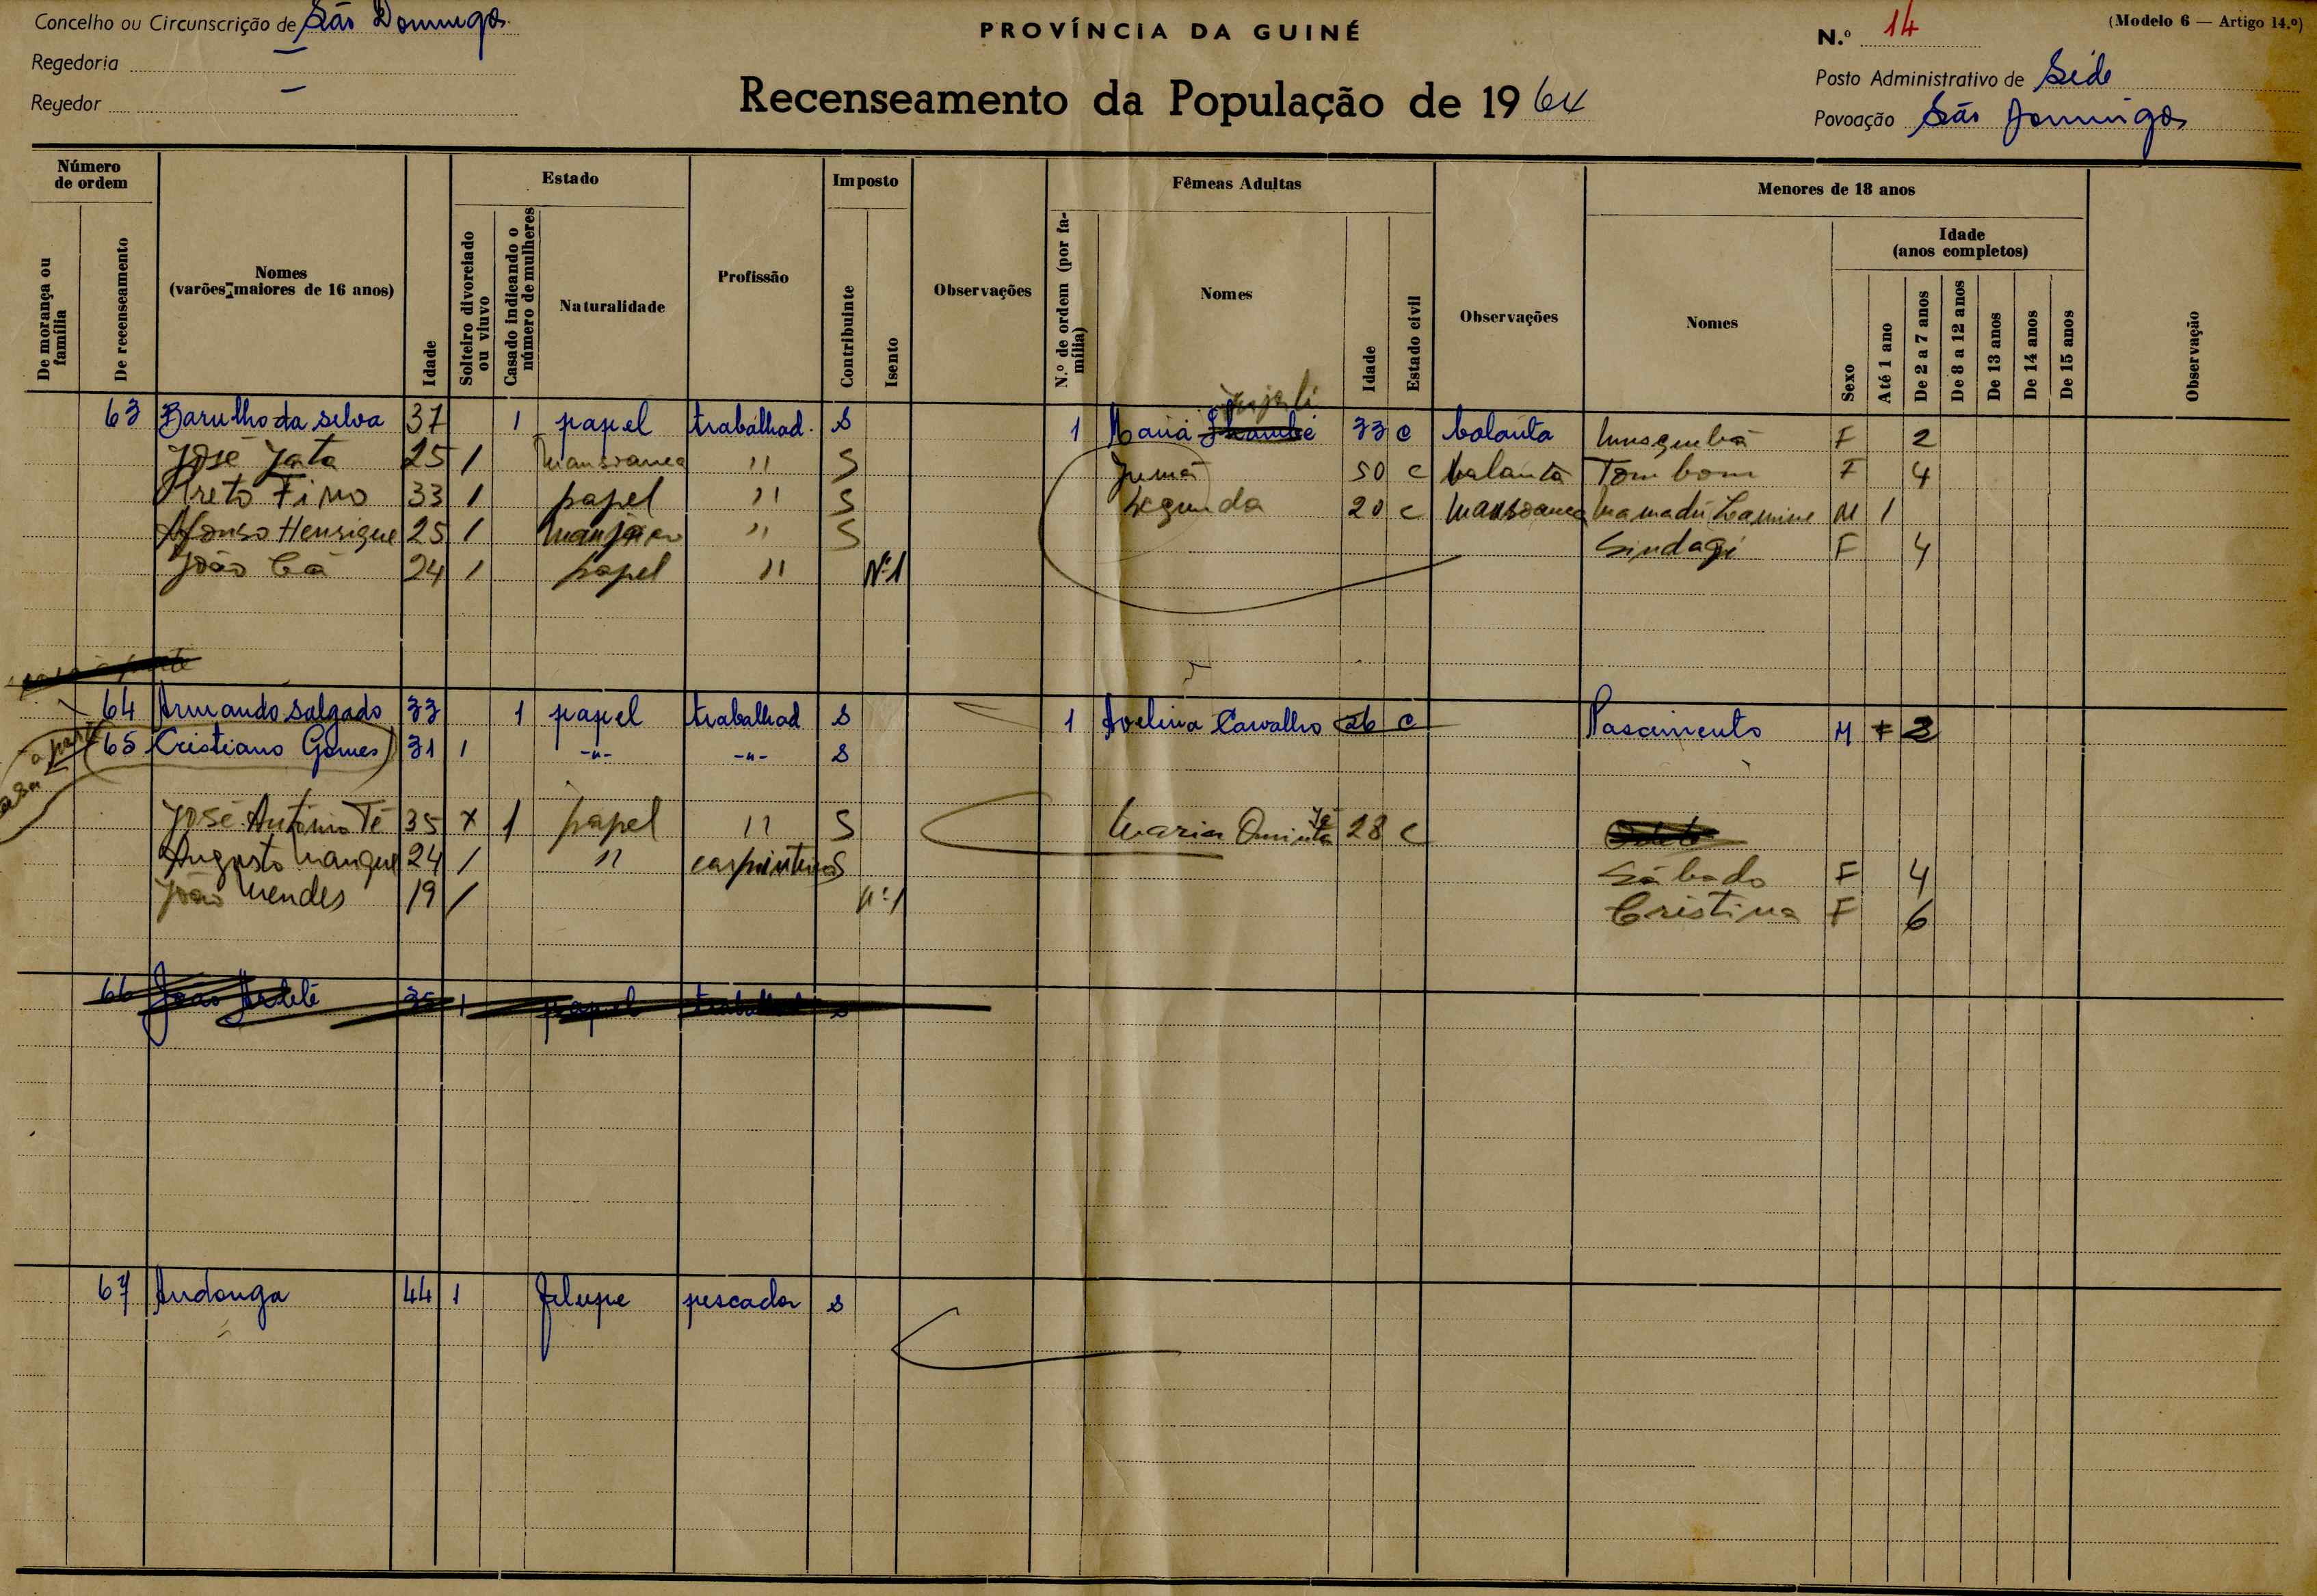 Concelho ou Circunscrição de São Domingos
PROVÍNCIA DA GUINÉ
N.º 14
(Modelo 6 — Artigo 14.º)
Regedoria —
Posto Administrativo de Sede
Regedor —
Recenseamento da População de 1964
Povoação São Domingos
Número de ordem
De morança ou família
De recenseamento
Nomes (varões maiores de 16 anos)
Idade
Estado
Solteiro divorciado ou viuvo
Casado indicando o número de mulheres
Naturalidade
Profissão
Imposto
Contribuinte
Isento
Observações
Fêmeas Adultas
N.º de ordem (por família)
Nomes
Idade
Estado civil
Observações
Menores de 18 anos
Nomes
Sexo
Idade (anos completos)
Até 1 ano
De 2 a 7 anos
De 8 a 12 anos
De 13 anos
De 14 anos
De 15 anos
Observação
63 Barulho da Silva 37 1 papel trabalhad. S 1 Maria 33 c balanta F 2
José Jata 25 1 Mansoanca " S Jumá 50 c balanta Tombom F 4
Preto Fino 33 1 papel " S Segunda 20 c Mansoanca Mamadú Lamine M 1
Afonso Henrique 25 1 manjaco " S Sindagi F 4
João Cá 24 1 papel " Nº1
64 Armando Salgado 33 1 papel trabalhad S 1 Avelina Carvalho 26 c Nascimento M 3
65 Cristiano Gomes 31 1 -"- -"- S
José António Té 35 x 1 papel " S Maria Quinta Té 28 c
Augusto Mangue 24 1 " carpinteiro S Sábado F 4
João Mendes 19 1 nº1 Cristina F 6
66 João 35 1 papel trabalhad S
67 Andonga 44 1 Felupe pescador S